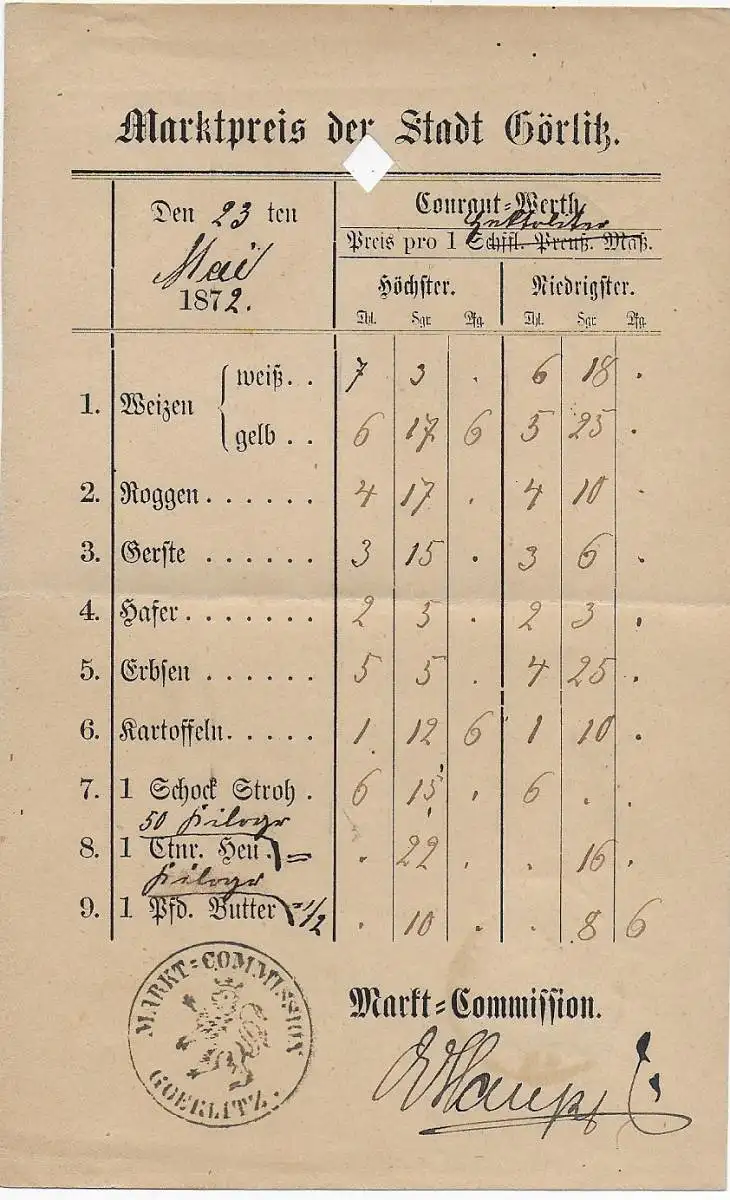 Marktpreis der Stadt Görlitz.
Den 23 ten
Mai
1872.
Courant=Werth
Hektoliter
Preis pro 1 Schffl. Preuß. Maß.
Höchster. Niedrigster.
Thl. Sgr. Pfg. Thl. Sgr. Pfg.
1. Weizen { weiß . . 7 3 . 6 18 .
gelb . . 6 17 6 5 25 .
2. Roggen . . . . . . 4 17 . 4 10 .
3. Gerste . . . . . . 3 15 . 3 6 .
4. Hafer . . . . . . . 2 5 . 2 3 .
5. Erbsen . . . . . . 5 5 . 4 25 .
6. Kartoffeln . . . . . 1 12 6 1 10 .
7. 1 Schock Stroh . 6 15 . 6 . .
50 Kilogr
8. 1 Ctnr. Heu = . 22 . . 16 .
Kilogr
9. 1 Pfd. Butter = 1/2 . 10 . . 8 6
MARKT=COMMISSION
GOERLITZ.
Markt=Commission.